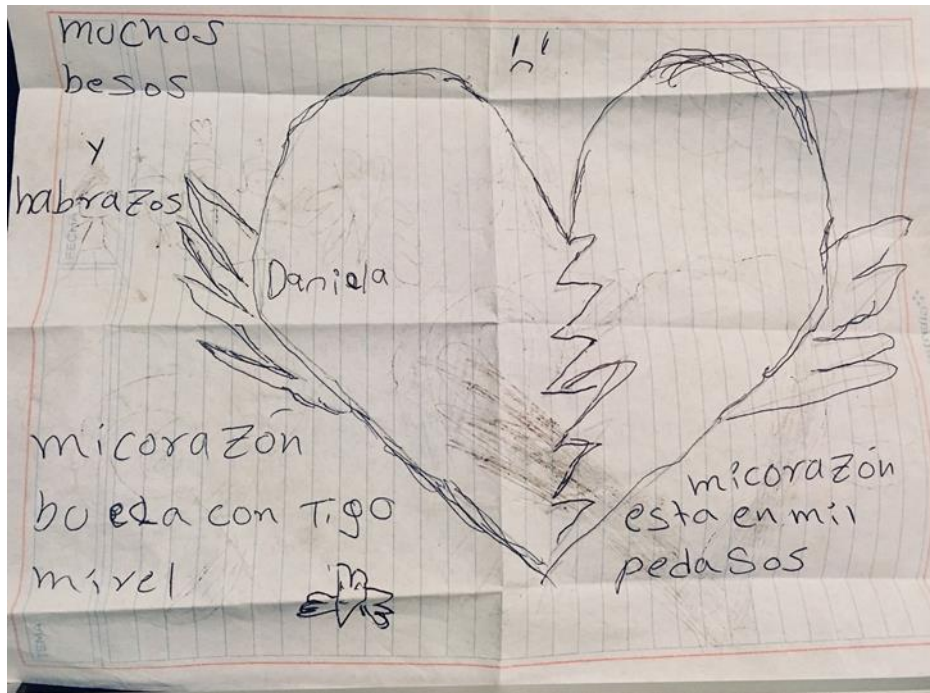 muchos
besos
y
habrazos
Daniela
micorazón
buela con Tigo
mirel
micorazón
esta en mil
pedaSos